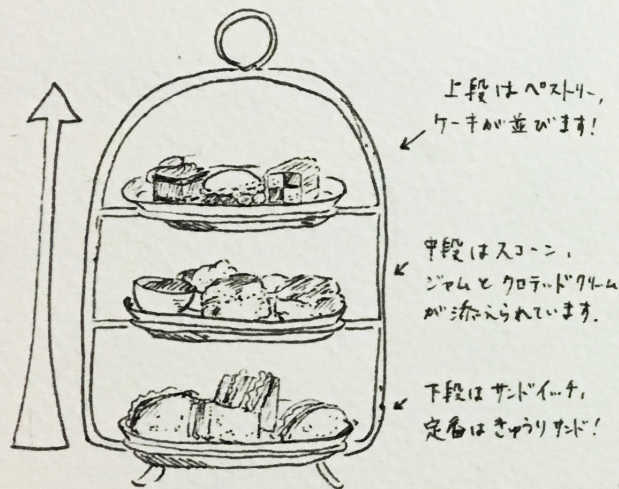 上段はペストリー,
ケーキが並びます!
中段はスコーン,
ジャムとクロテッドクリーム
が添えられています.
下段はサンドイッチ,
定番はきゅうりサンド!